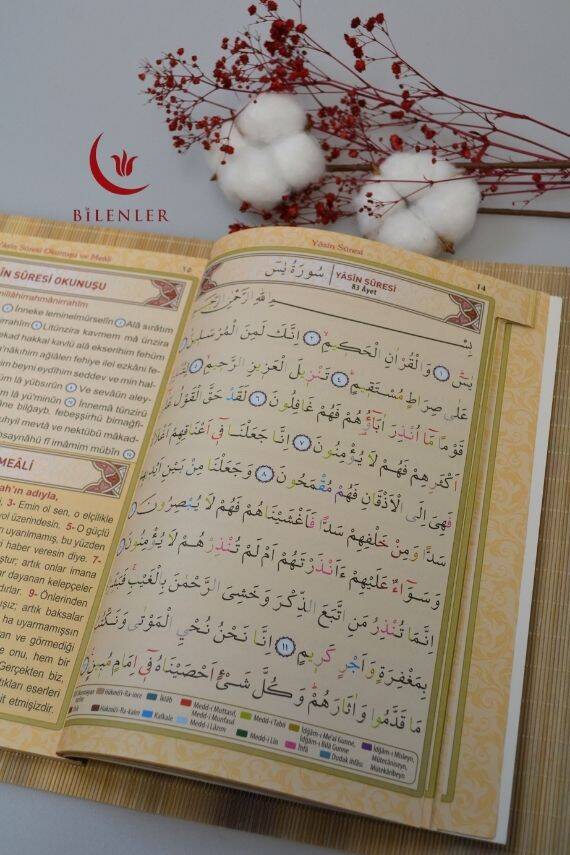 BİLENLER
Yâsîn Sûresi Okunuşu ve Meâli
ÎN SÛRESİ OKUNUŞU
millâhirrahmânirrahîm
İnneke leminelmürselîn ③ Alâ sırâtim
Litünzira kavmem mâ ünzira
ekad hakkal kavlü alâ ekserihim fehüm
a'nâkıhim ağlâlen fehiye ilel ezkâni fe-
min beyni eydîhim seddev ve min hal-
m lâ yübsırûn ⑨ Ve sevâün aley-
m lâ yü'minûn ⑩ İnnemâ tünziru
bilğayb. febeşşirhü bimağfi-
nuhyil mevtâ ve nektübü mâ kad-
hsaynâhü fî imâmim mübîn ⑫
MEÂLİ
ah'ın adıyla,
3- Emin ol sen, o elçilikle
yol üzerindesin. 5- O güçlü
uyarılmamış, bu yüzden
i haber veresin diye. 7-
ştur; artık onlar imana
dayanan kelepçeler
lardır. 9- Önlerinden
uşuz; artık baksalar
ha uyarmamışsın
an ve görmediği
onu, hem bir
Gerçekten biz,
tıkları eserleri
it etmişizdir.
Yâsîn Sûresi
14
سُورَةُ يٰسٓ
YÂSÎN SÛRESİ
83 Âyet
بِسْمِ اللّٰهِ الرَّحْمٰنِ الرَّحٖيمِ
يٰسٓ ﴿١﴾ وَالْقُرْاٰنِ الْحَكٖيمِ ﴿٢﴾ اِنَّكَ لَمِنَ الْمُرْسَلٖينَ ﴿٣﴾
عَلٰى صِرَاطٍ مُسْتَقٖيمٍ ﴿٤﴾ تَنْزٖيلَ الْعَزٖيزِ الرَّحٖيمِ ﴿٥﴾ لِتُنْذِرَ
قَوْمًا مَٓا اُنْذِرَ اٰبَٓاؤُ۬هُمْ فَهُمْ غَافِلُونَ ﴿٦﴾ لَقَدْ حَقَّ الْقَوْلُ عَلٰٓى
اَكْثَرِهِمْ فَهُمْ لَا يُؤْمِنُونَ ﴿٧﴾ اِنَّا جَعَلْنَا فٖٓي اَعْنَاقِهِمْ اَغْلَالًا
فَهِيَ اِلَى الْاَذْقَانِ فَهُمْ مُقْمَحُونَ ﴿٨﴾ وَجَعَلْنَا مِنْ بَيْنِ اَيْدٖيهِمْ
سَدًّا وَمِنْ خَلْفِهِمْ سَدًّا فَاَغْشَيْنَاهُمْ فَهُمْ لَا يُبْصِرُونَ ﴿٩﴾
وَسَوَٓاءٌ عَلَيْهِمْ ءَاَنْذَرْتَهُمْ اَمْ لَمْ تُنْذِرْهُمْ لَا يُؤْمِنُونَ ﴿١٠﴾
اِنَّمَا تُنْذِرُ مَنِ اتَّبَعَ الذِّكْرَ وَخَشِيَ الرَّحْمٰنَ بِالْغَيْبِ فَبَشِّرْهُ
بِمَغْفِرَةٍ وَاَجْرٍ كَرٖيمٍ ﴿١١﴾ اِنَّا نَحْنُ نُحْيِ الْمَوْتٰى وَنَكْتُبُ
مَا قَدَّمُوا وَاٰثَارَهُمْ وَكُلَّ شَيْءٍ اَحْصَيْنَاهُ فٖٓي اِمَامٍ مُبٖينٍ ﴿١٢﴾
Hükmü'r-Ra-ince
İklâb
Medd-i Muttasıl, Medd-i Munfasıl
Medd-i Tabiî
İdğâm-ı Me'al Gunne, İdğâm-ı Bilâ Gunne
İdğâm-ı Misleyn, Mütecâniseyn, Mütekâribeyn
Hükmü'r-Ra-kalın
Kalkale
Medd-i Lâzım
Medd-i Lîn
İhfâ
Dudak ihfâsı